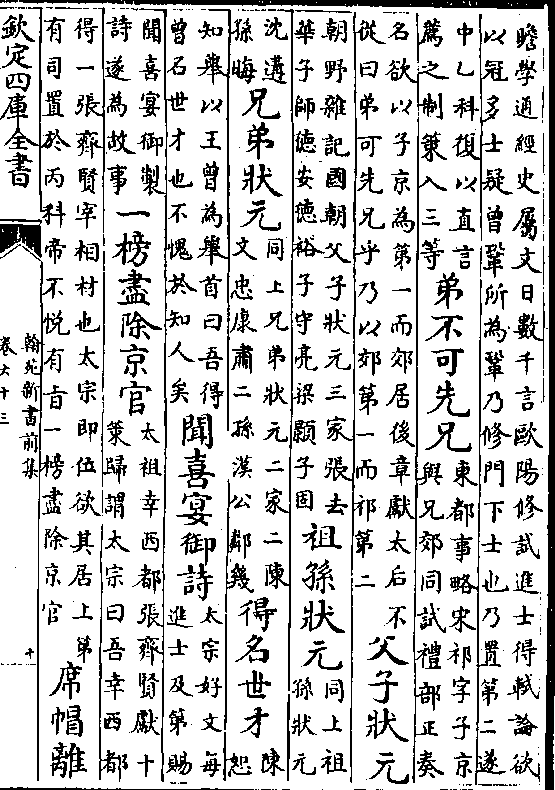 瞻學通經史屬文日數千言歐陽修試進士得軾論欲
以冠多士疑曾鞏所為鞏乃修門下士也乃置第二遂
中乙科復以直言
薦之制策入三等
弟不可先兄
東都事略宋祁字子京
與兄郊同試禮部正奏
名欲以子京為第一而郊居後章獻太后不
從曰弟可先兄乎乃以郊第一而祁第二
父子狀元
朝野雜記國朝父子狀元三家張去
華子師德安德裕子守亮梁顥子固
祖孫狀元
同上祖
孫狀元
沈遘
孫晦
兄弟狀元
同上兄弟狀元二家二陳
文忠康肅二孫漢公鄰幾
得名世才
陳
恕
知舉以王曾為舉首曰吾得
曾名世才也不愧於知人矣
聞喜宴御詩
太宗好文每
進士及第賜
聞喜宴御製
詩遂為故事
一榜盡除京官
太祖幸西都張齊賢獻十
策歸謂太宗曰吾幸西都
得一張齊賢宰相材也太宗即位欲其居上第
有司置於丙科帝不悅有旨一榜盡除京官
席帽離
欽定四庫全書
翰苑新書前集
卷六十三
十